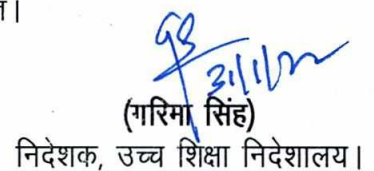 31/1/22
(गरिमा सिंह)
निदेशक, उच्च शिक्षा निदेशालय।